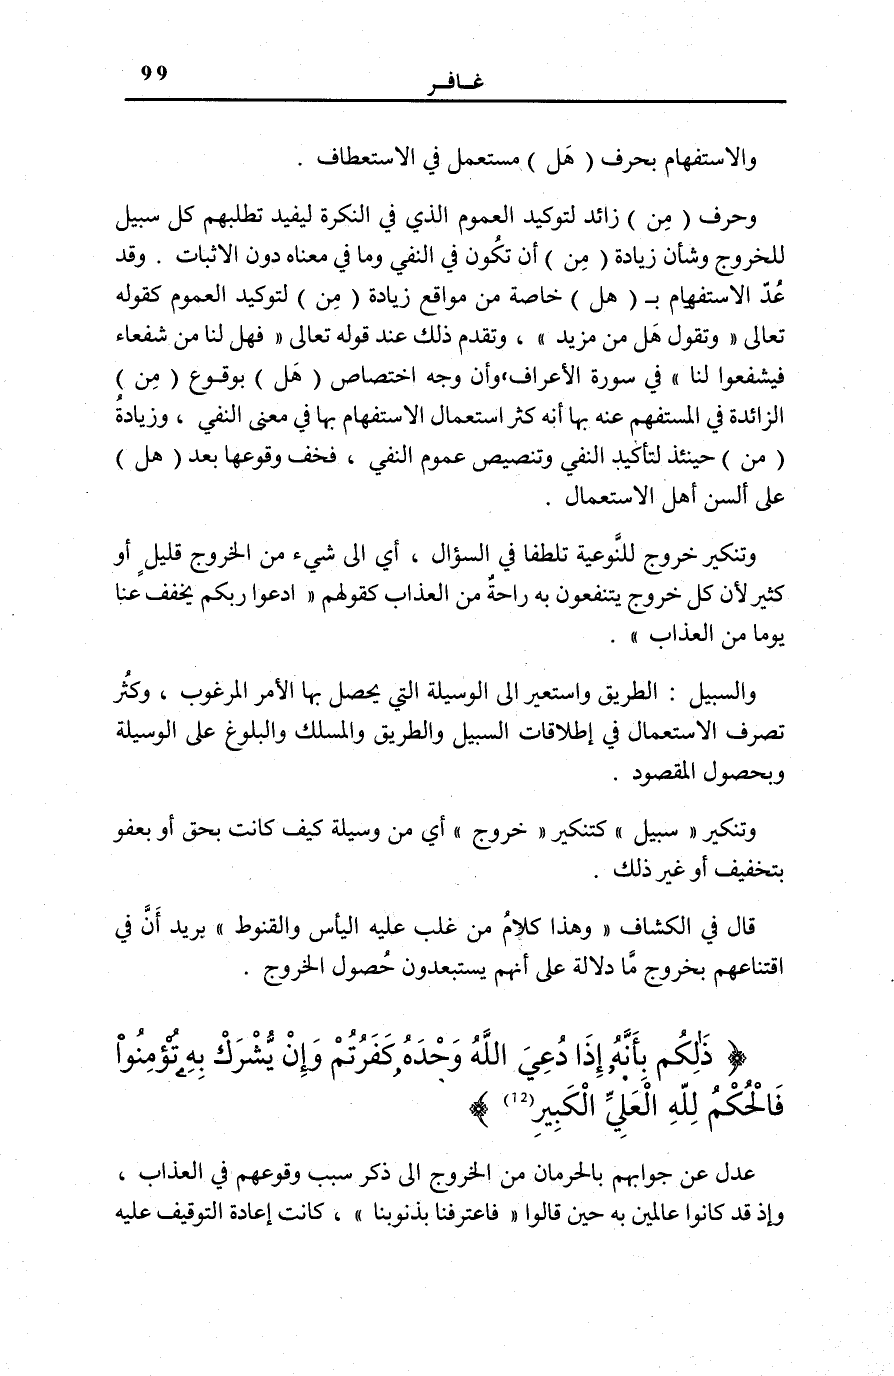 99
غـافـر
والاستفهام بحرف ( هَل ) مستعمل في الاستعطاف .
وحرف ( مِن ) زائد لتوكيد العموم الذي في النكرة ليفيد تطلبهم كل سبيل
للخروج وشأن زيادة ( مِن ) أن تكُون في النفي وما في معناه دون الاثبات . وقد
عُدّ الاستفهام بـ ( هل ) خاصة من مواقع زيادة ( مِن ) لتوكيد العموم كقوله
تعالى « وتقول هَل من مزيد » ، وتقدم ذلك عند قوله تعالى « فهل لنا من شفعاء
فيشفعوا لنا » في سورة الأعراف، وأن وجه اختصاص ( هَل ) بوقـوع ( مِن )
الزائدة في المستفهم عنه بها أنه كثر استعمال الاستفهام بها في معنى النفي ، وزيادةُ
( من ) حينئذ لتأكيد النفي وتنصيص عموم النفي ، فخف وقوعها بعد ( هل )
على ألسن أهل الاستعمال .
وتنكير خروج للنَّوعية تلطفا في السؤال ، أي الى شيء من الخروج قليلٍ أو
كثير لأن كل خروج يتنفعون به راحةٌ من العذاب كقولهم « ادعوا ربكم يخفف عنا
يوما من العذاب » .
والسبيل : الطريق واستعير الى الوسيلة التي يحصل بها الأمر المرغوب ، وكثُر
تصرف الاستعمال في إطلاقات السبيل والطريق والمسلك والبلوغ على الوسيلة
وبحصول المقصود .
وتنكير « سبيل » كتنكير « خروج » أي من وسيلة كيف كانت بحق أو بعفو
بتخفيف أو غير ذلك .
قال في الكشاف « وهذا كلامُ من غلب عليه اليأس والقنوط » يريد أنَّ في
اقتناعهم بخروج مَّا دلالة على أنهم يستبعدون حُصول الخروج .
﴿ ذَٰلِكُم بِأَنَّهُۥ إِذَا دُعِيَ اللَّهُ وَحْدَهُۥ كَفَرْتُمْ وَإِنْ يُّشْرَكْ بِهِۦ تُؤْمِنُواْ
فَالْحُكْمُ لِلَّهِ الْعَلِيِّ الْكَبِيرِ (12) ﴾
عدل عن جوابهم بالحرمان من الخروج الى ذكر سبب وقوعهم في العذاب ،
وإذ قد كانوا عالمين به حين قالوا « فاعترفنا بذنوبنا » ، كانت إعادة التوقيف عليه